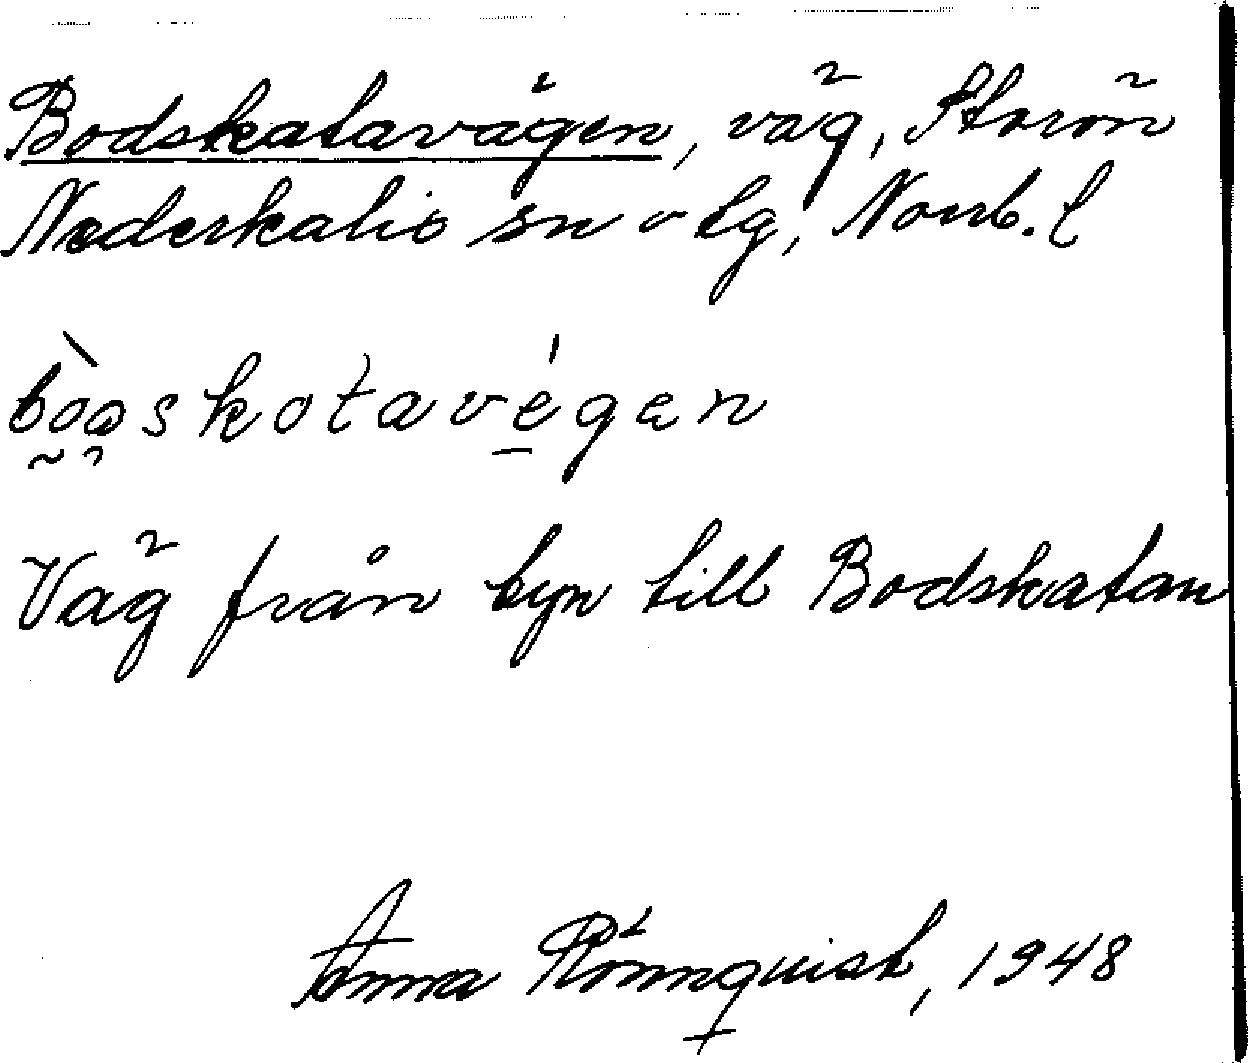 Bodskatavägen, väg, Storön
Nederkalix sn o tg, Norrb. l
bòo̯skotavég̱en
Väg från byn till Bodskatan
Anna Rönnquist, 1948